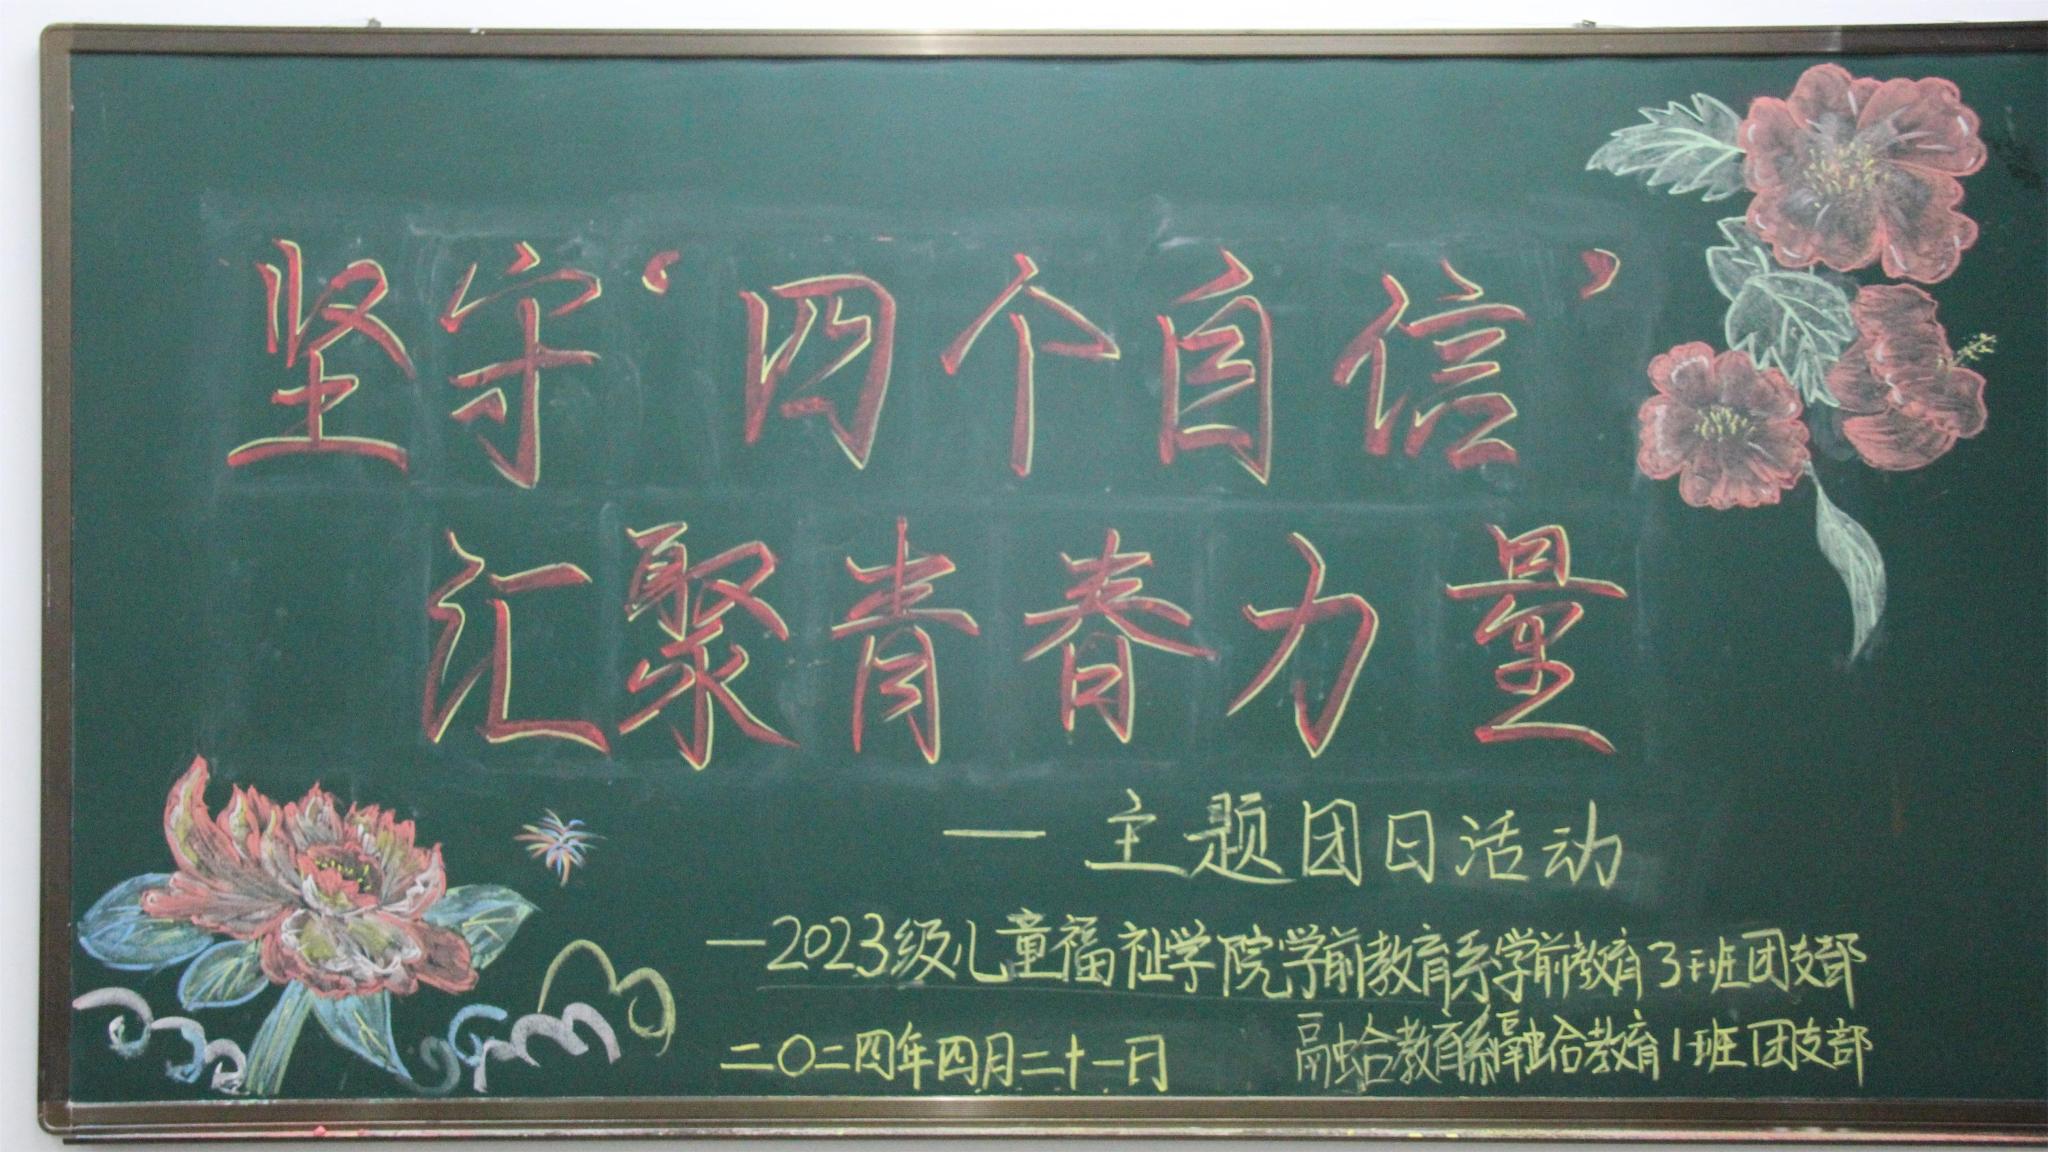 坚守‘四个自信’
汇聚青春力量
— 主题团日活动
—2023级儿童福祉学院学前教育系学前教育3班团支部
融合教育系融合教育1班团支部
二〇二四年四月二十一日